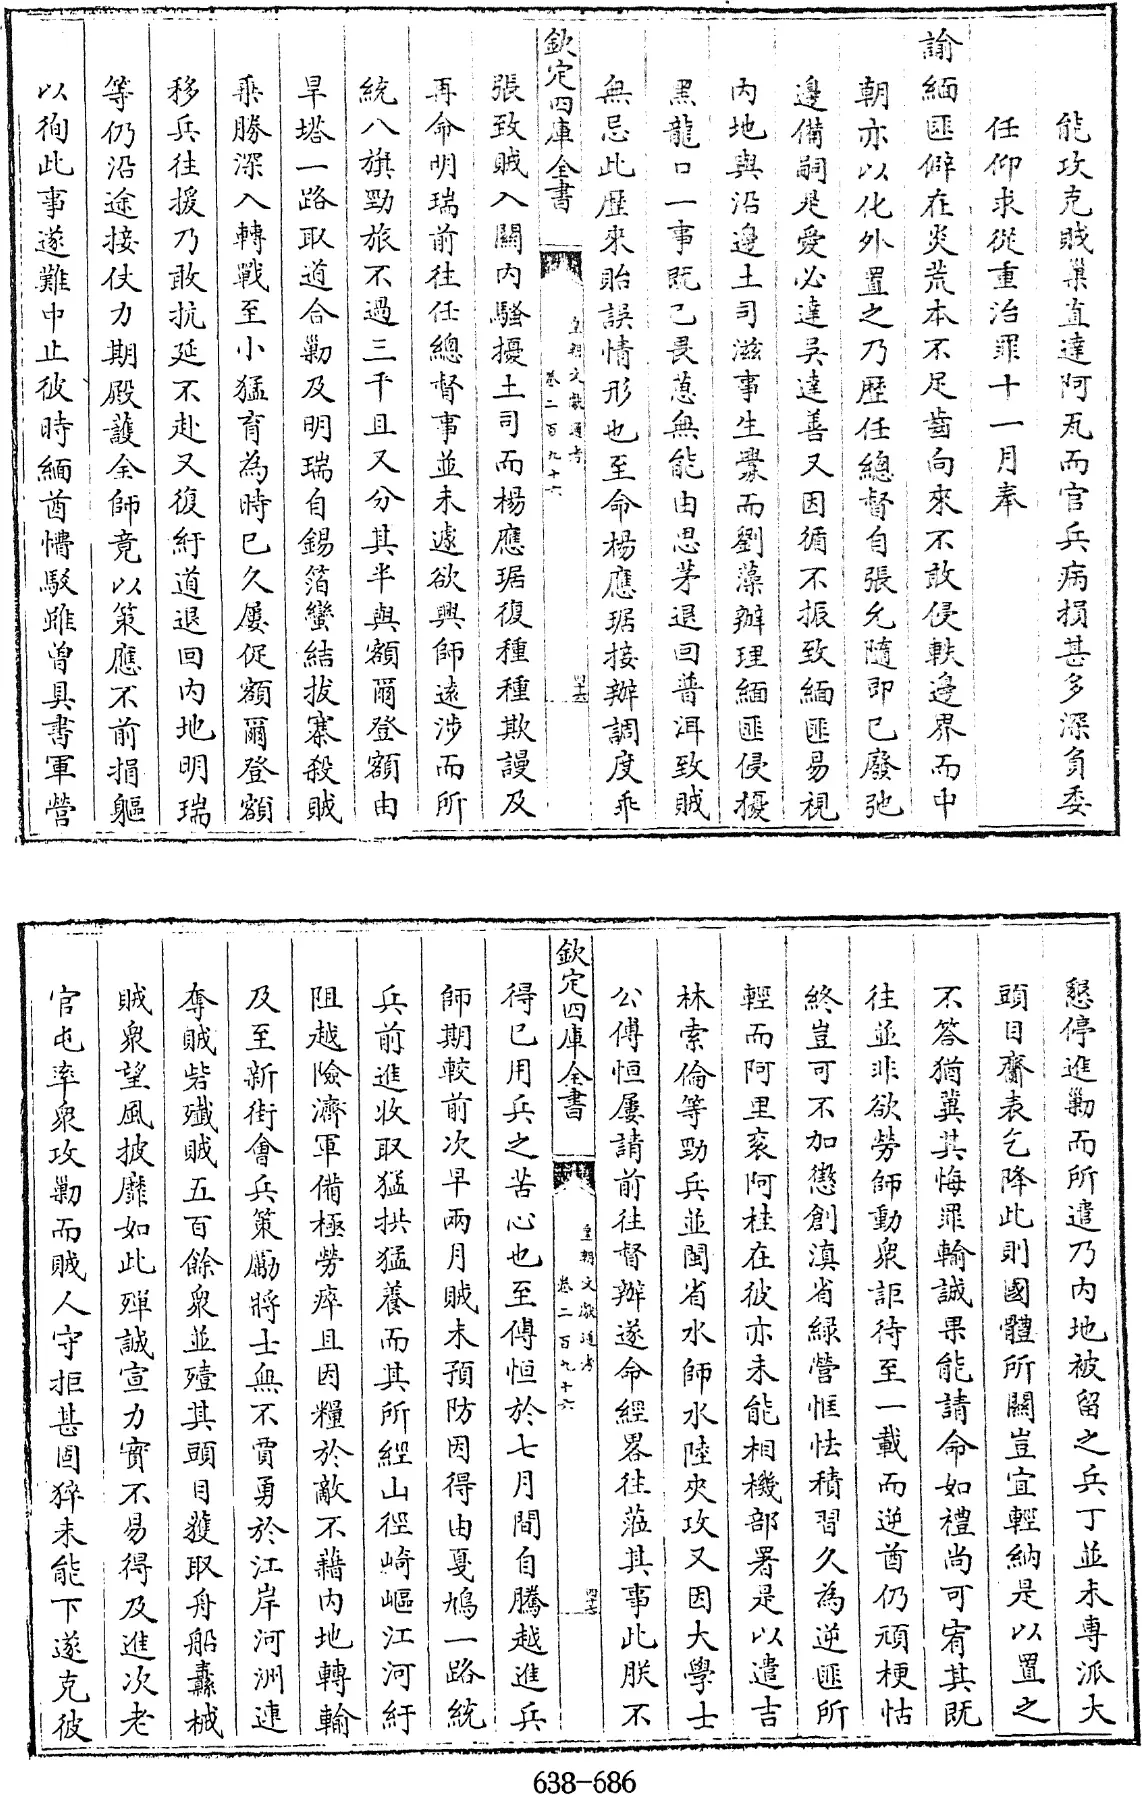 能攻克賊巢直達阿瓦而官兵病損甚多深負委
任仰求從重治罪十一月奉
諭緬匪僻在炎荒本不足齒向來不敢侵軼邊界而中
朝亦以化外置之乃歷任總督自張允隨即已廢弛
邊備嗣是愛必達吳達善又因循不振致緬匪易視
內地與沿邊土司滋事生釁而劉藻辦理緬匪侵擾
黑龍口一事既已畏葸無能由思茅退回普洱致賊
無忌此歷來貽誤情形也至命楊應琚接辦調度乖
欽定四庫全書
皇朝文獻通考
卷二百九十六
張致賊入關內騷擾土司而楊應琚復種種欺謾及
再命明瑞前往任總督事並未遽欲興師遠涉而所
統八旗勁旅不過三千且又分其半與額爾登額由
旱塔一路取道合勦及明瑞自錫箔蠻結拔寨殺賊
乘勝深入轉戰至小猛育為時已久屢促額爾登額
移兵往援乃敢抗延不赴又復紆道退回內地明瑞
等仍沿途接仗力期殿護全師竟以策應不前捐軀
以徇此事遂難中止彼時緬酋慴駭雖曾具書軍營
懇停進勦而所遣乃內地被留之兵丁並未專派大
頭目齎表乞降此則國體所關豈宜輕納是以置之
不答猶冀其悔罪輸誠果能請命如禮尚可宥其既
往並非欲勞師動衆詎待至一載而逆酋仍頑梗怙
終豈可不加懲創滇省綠營恇怯積習久為逆匪所
輕而阿里袞阿桂在彼亦未能相機部署是以遣吉
林索倫等勁兵並閩省水師水陸夾攻又因大學士
公傅恒屢請前往督辦遂命經畧往蒞其事此朕不
欽定四庫全書
皇朝文獻通考
卷二百九十六
得已用兵之苦心也至傅恒於七月間自騰越進兵
師期較前次早兩月賊未預防因得由戛鳩一路統
兵前進收取猛拱猛養而其所經山徑崎嶇江河紆
阻越險濟軍備極勞瘁且因糧於敵不藉內地轉輸
及至新街會兵策勵將士無不賈勇於江岸河洲連
奪賊砦殲賊五百餘衆並殪其頭目獲取舟船纛械
賊衆望風披靡如此殫誠宣力實不易得及進次老
官屯率衆攻勦而賊人守拒甚固猝未能下遂克彼
638-686